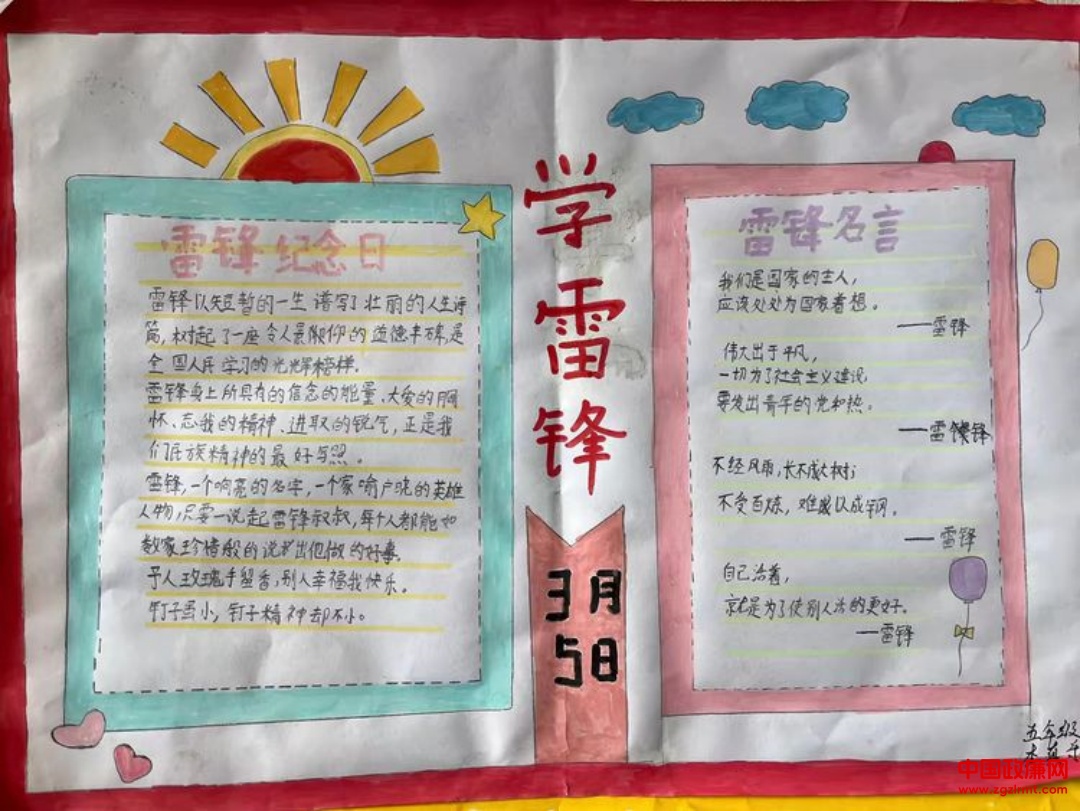 雷锋纪念日
雷锋以短暂的一生谱写了壮丽的人生诗
篇,树起了一座令人景仰的道德丰碑,是
全国人民学习的光辉榜样。
雷锋身上所具有的信念的能量、大爱的胸
怀、忘我的精神、进取的锐气,正是我
们民族精神的最好写照。
雷锋,一个响亮的名字,一个家喻户晓的英雄
人物,只要一说起雷锋叔叔,每个人都能如
数家珍搬的说出他做的好事。
予人玫瑰手留香,别人幸福我快乐。
钉子虽小,钉子精神却不小。
学
雷
锋
3月
5日
雷锋名言
我们是国家的主人,
应该处处为国家着想。
——雷锋
伟大出于平凡,
一切为了社会主义建设,
要发出青年的光和热。
——雷锋
不经风雨,长不成大树;
不受百炼,难以成钢。
——雷锋
自己活着,
就是为了使别人活的更好。
——雷锋
五年级
中国政廉网
www.zgzlmt.com